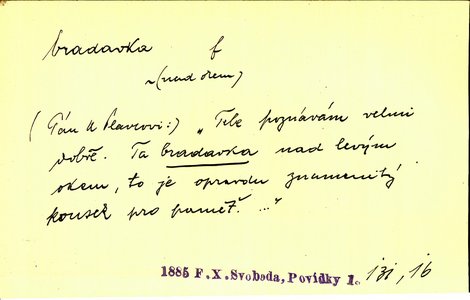 bradavka f
~ (nad okem)
(Pán k Plavcovi:) „Tebe poznávám velmi
dobře. Ta bradavka nad levým
okem, to je opravdu znamenitý
kousek pro paměť. ..."
1885 F.X.Svoboda, Povídky 1. 131, 16